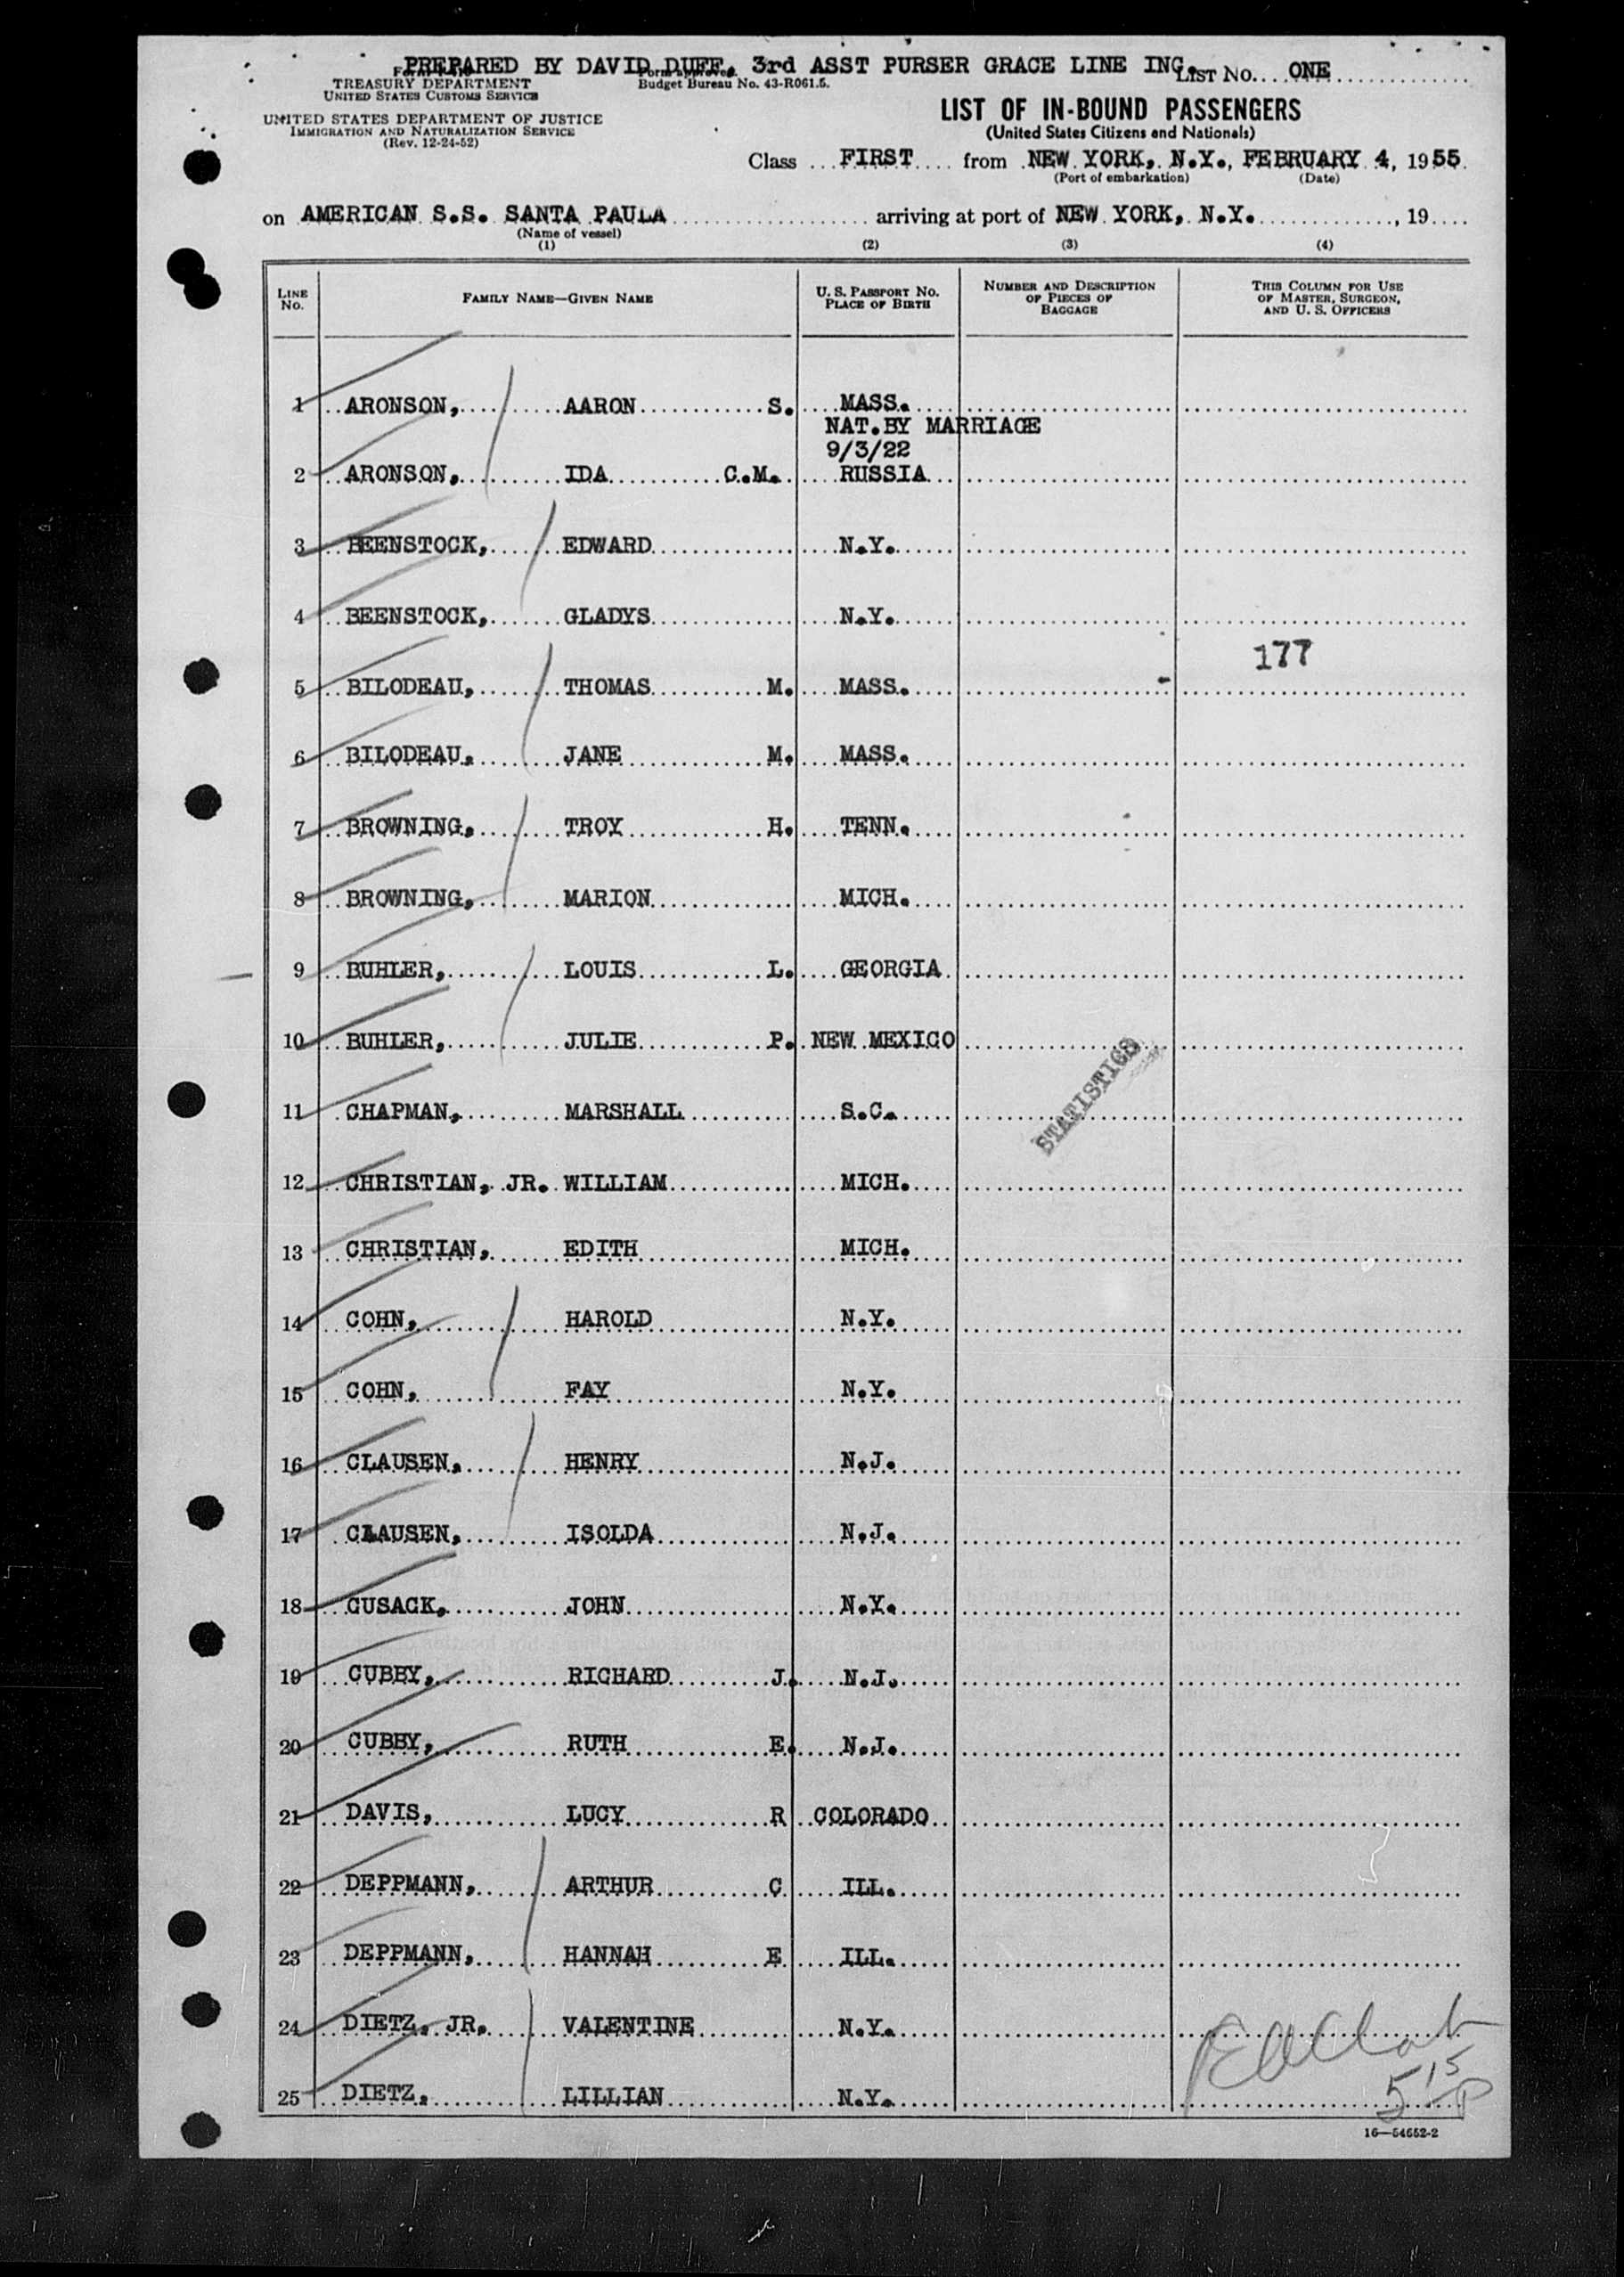 PREPARED BY DAVID DUFF, 3rd ASST PURSER GRACE LINE INC.
LIST No. ONE
TREASURY DEPARTMENT
UNITED STATES CUSTOMS SERVICE
Form approved.
Budget Bureau No. 43-R061.5.
UNITED STATES DEPARTMENT OF JUSTICE
IMMIGRATION AND NATURALIZATION SERVICE
(Rev. 12-24-52)
LIST OF IN-BOUND PASSENGERS
(United States Citizens and Nationals)
Class FIRST from NEW YORK, N.Y., FEBRUARY 4, 1955
(Port of embarkation) (Date)
on AMERICAN S.S. SANTA PAULA arriving at port of NEW YORK, N.Y. , 19
(Name of vessel)
(1) (2) (3) (4)
LINE No.
FAMILY NAME—GIVEN NAME
U. S. PASSPORT NO.
PLACE OF BIRTH
NUMBER AND DESCRIPTION
OF PIECES OF
BAGGAGE
THIS COLUMN FOR USE
OF MASTER, SURGEON,
AND U. S. OFFICERS
1 ARONSON, AARON S. MASS.
NAT.BY MARRIAGE
9/3/22
2 ARONSON, IDA C.M. RUSSIA
3 BEENSTOCK, EDWARD N.Y.
4 BEENSTOCK, GLADYS N.Y.
177
5 BILODEAU, THOMAS M. MASS.
6 BILODEAU, JANE M. MASS.
7 BROWNING, TROY H. TENN.
8 BROWNING, MARION MICH.
9 BUHLER, LOUIS L. GEORGIA
10 BUHLER, JULIE P. NEW MEXICO
STATISTICS
11 CHAPMAN, MARSHALL S.C.
12 CHRISTIAN, JR. WILLIAM MICH.
13 CHRISTIAN, EDITH MICH.
14 COHN, HAROLD N.Y.
15 COHN, FAY N.Y.
16 CLAUSEN, HENRY N.J.
17 CLAUSEN, ISOLDA N.J.
18 CUSACK, JOHN N.Y.
19 CUBBY, RICHARD J. N.J.
20 CUBBY, RUTH E. N.J.
21 DAVIS, LUCY R COLORADO
22 DEPPMANN, ARTHUR C ILL.
23 DEPPMANN, HANNAH E ILL.
24 DIETZ, JR. VALENTINE N.Y.
25 DIETZ, LILLIAN N.Y.
5 15 P
16—54652-2